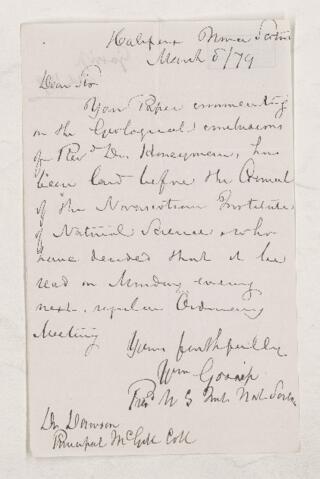 Halifax Nova Scotia
March 8/79
Dear Sir
Your Paper commenting
on the Geological conclusions
of Revd Dr. Honeyman, has
been laid before the Council
of the Novascotian Institute
of Natural Science, who
have decided that it be
read on Monday evening
next, regular Ordinary
Meeting
Yours faithfully
Wm Gossip
Presd N S Inst Nat Science
Dr Dawson
Principal McGill Coll